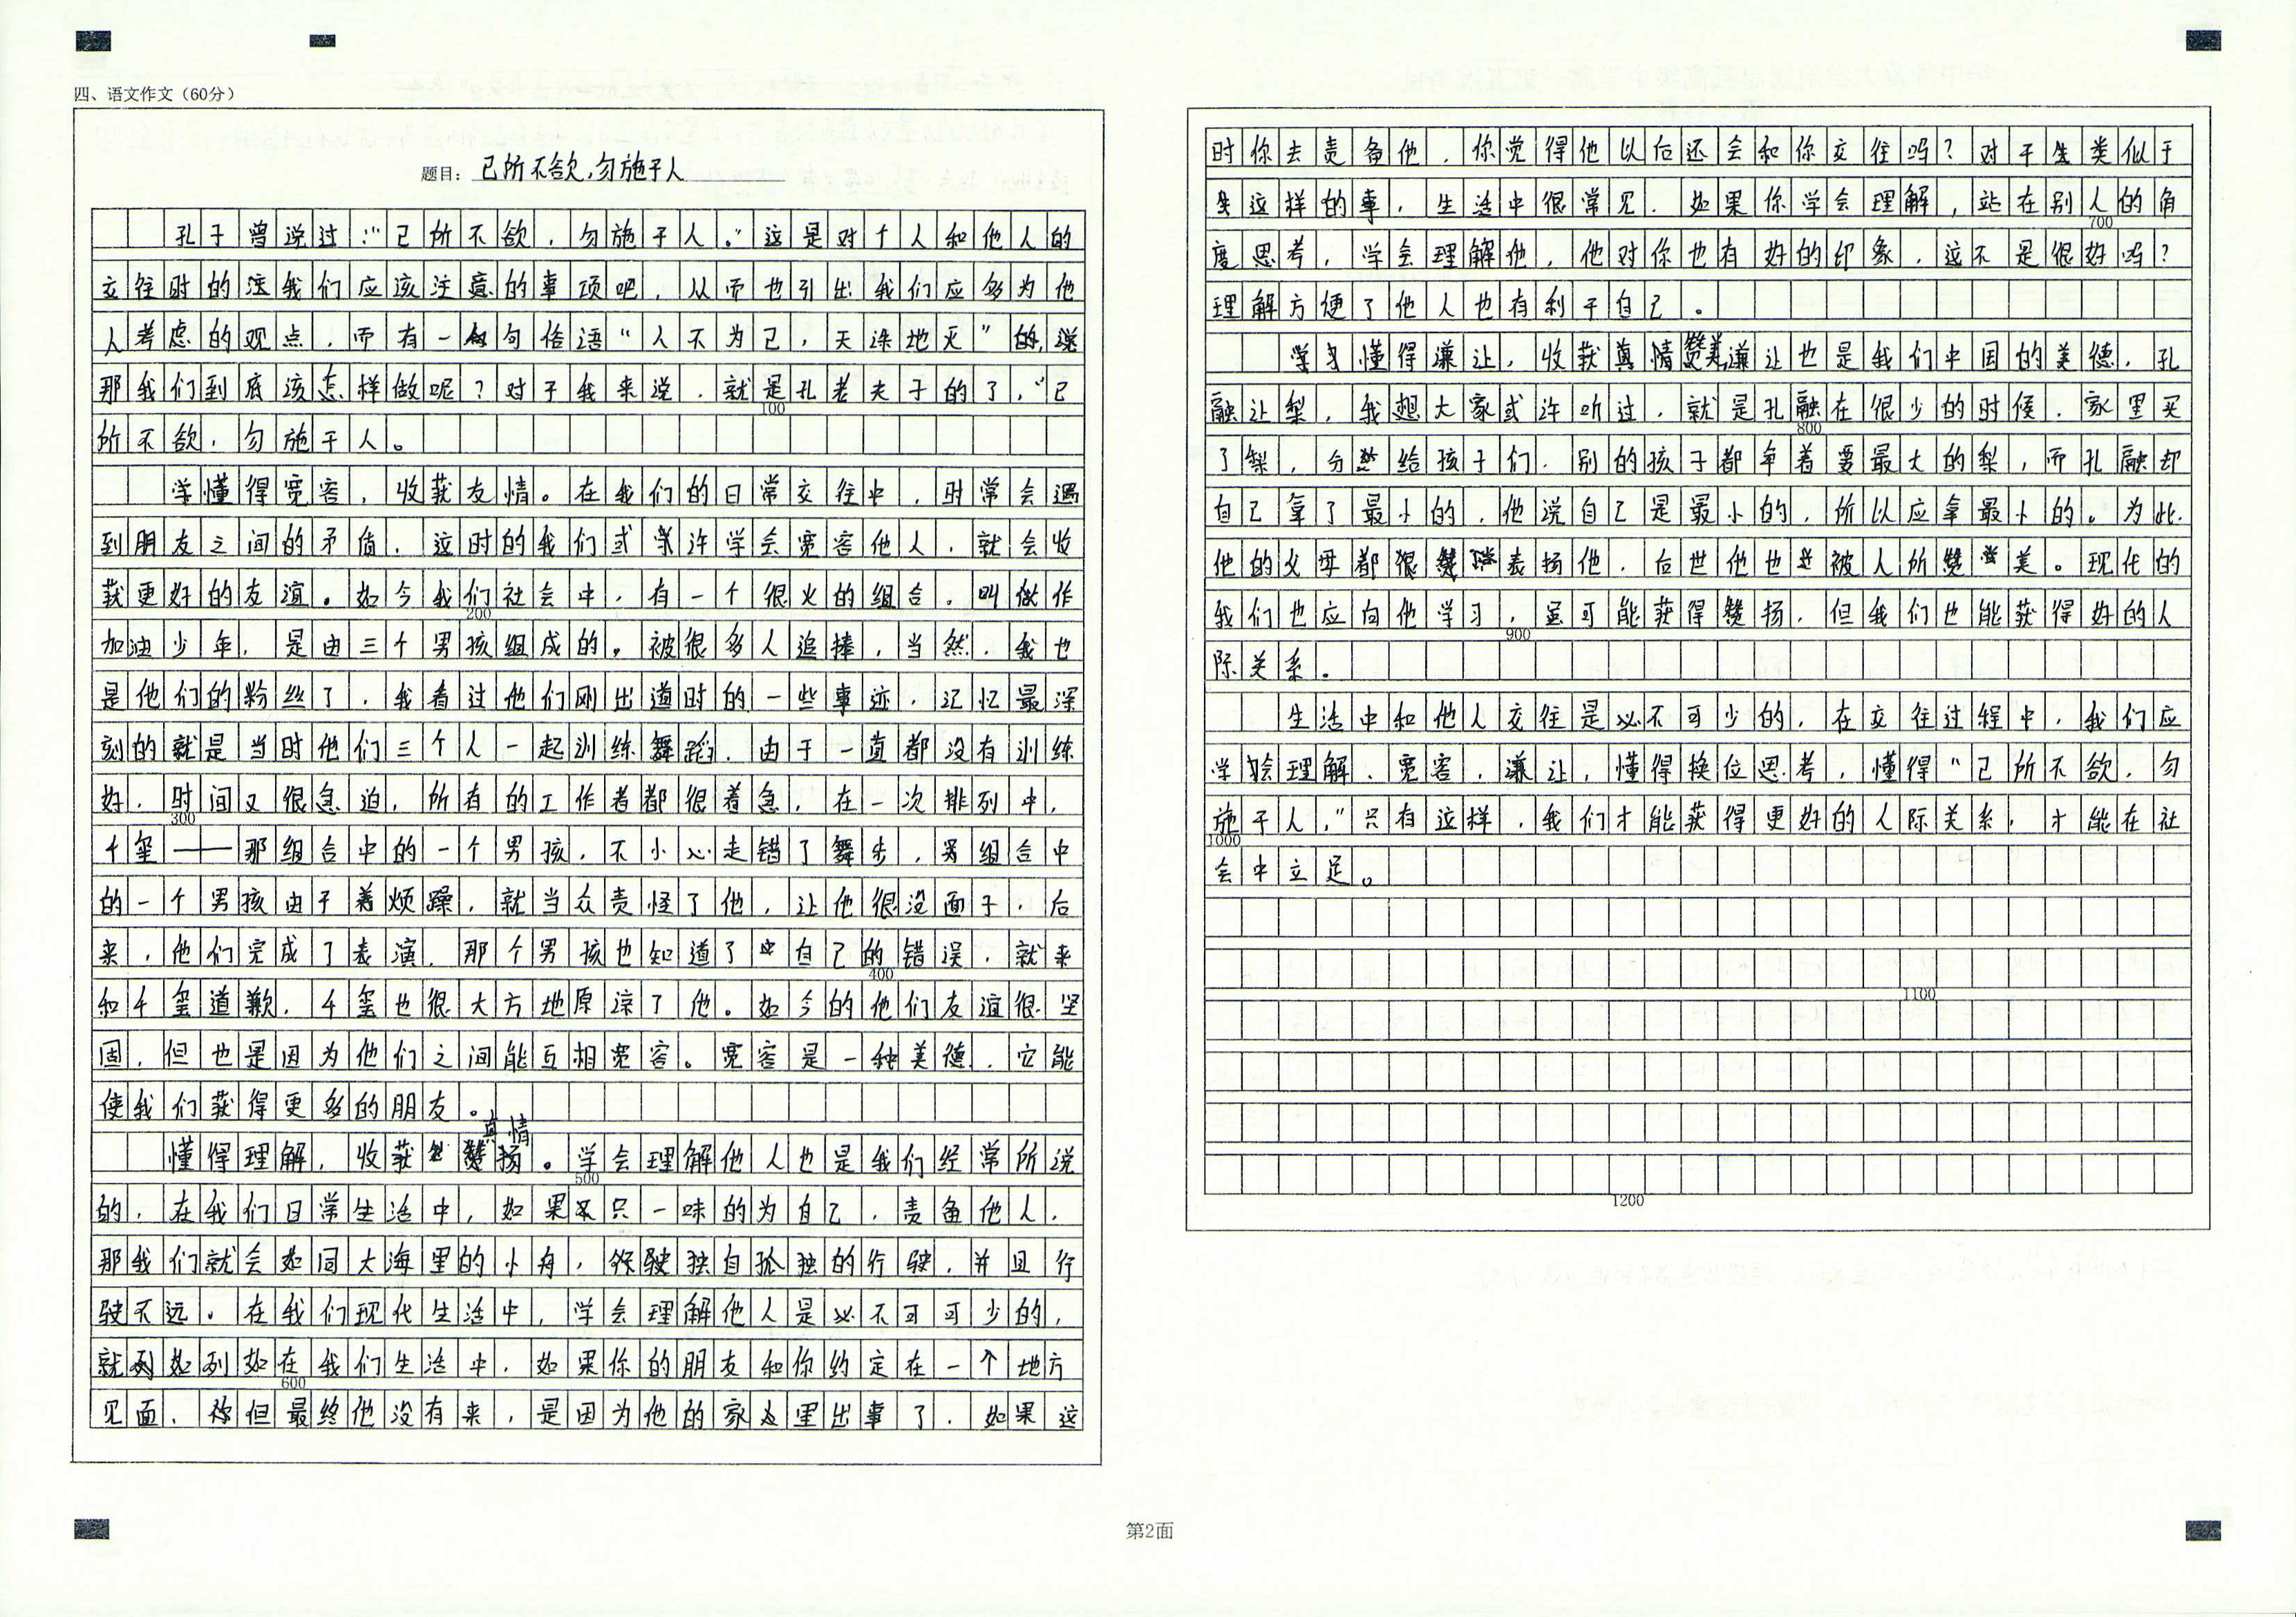 四、语文作文（60分）
题目：己所不欲，勿施于人
孔子曾说过："己所不欲，勿施于人。"这是对个人和他人的
交往时的我们应该注意的事项吧，从而也引出我们应多为他
人考虑的观点，而有一句俗语"人不为己，天诛地灭"的说
那我们到底该怎样做呢？对于我来说，就是孔老夫子的了，"己
100
所不欲，勿施于人。
学懂得宽容，收获友情。在我们的日常交往中，时常会遇
到朋友之间的矛盾，这时的我们或许学会宽容他人，就会收
获更好的友谊。如今我们社会中，有一个很火的组合。叫做作
200
加油少年，是由三个男孩组成的。被很多人追捧，当然，我也
是他们的粉丝了，我看过他们刚出道时的一些事迹，记忆最深
刻的就是当时他们三个人一起训练舞蹈，由于一直都没有训练
好，时间又很急迫，所有的工作者都很着急，在一次排列中，
300
千玺——那组合中的一个男孩，不小心走错了舞步，另组合中
的一个男孩由于着烦躁，就当众责怪了他，让他很没面子，后
来，他们完成了表演，那个男孩也知道了自己的错误，就来
400
和千玺道歉，千玺也很大方地原谅了他。如今的他们友谊很坚
固，但也是因为他们之间能互相宽容。宽容是一种美德，它能
使我们获得更多的朋友。
懂得理解，收获真情。学会理解他人也是我们经常所说
500
的，在我们日常生活中，如果只一味的为自己，责备他人，
那我们就会如同大海里的小舟，独自孤独的行驶，并且行
驶不远。在我们现代生活中，学会理解他人是必不可可少的，
就列如在我们生活中，如果你的朋友和你约定在一个地方
600
见面，但最终他没有来，是因为他的家里出事了，如果这
时你去责备他，你觉得他以后还会和你交往吗？对于类似于
这样的事，生活中很常见，如果你学会理解，站在别人的角
700
度思考，学会理解他，他对你也有好的印象，这不是很好吗？
理解方便了他人也有利于自己。
懂得谦让，收获真情赞美谦让也是我们中国的美德，孔
融让梨，我想大家或许听过，就是孔融在很少的时候，家里买
800
了梨，分给孩子们，别的孩子都争着要最大的梨，而孔融却
自己拿了最小的，他说自己是最小的，所以应拿最小的。为此，
他的父母都很表扬他，后世他也被人所赞美。现代的
我们也应向他学习，虽可能获得赞扬，但我们也能获得好的人
900
际关系。
生活中和他人交往是必不可少的，在交往过程中，我们应
学会理解、宽容，谦让，懂得换位思考，懂得"己所不欲，勿
施于人，"只有这样，我们才能获得更好的人际关系，才能在社
1000
会中立足。
1100
1200
第2面